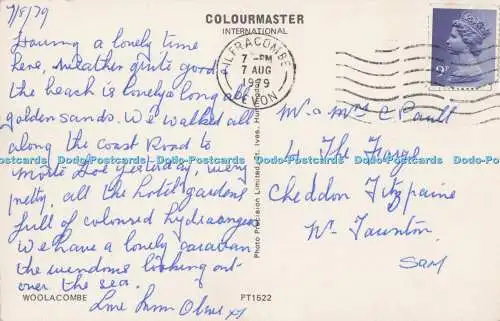 7/8/79
COLOURMASTER
INTERNATIONAL
Having a lovely time
here, weather quite good
the beach is lovely & long all
golden sands. We walked all
along the Coast Road to
Morte Hoe yesterday, very
pretty, all the hotel gardens
full of coloured hydrangeas
We have a lovely caravan
the windows looking out
over the sea.
Love from Olive xx
WOOLACOMBE
PT1522
Photo Precision Limited, St. Ives, Hunt
ILFRACOMBE
7 -PM
7 AUG
1979
DEVON
Mr & Mrs C Pault
4 The Forge
Cheddon Fitzpaine
Nr Taunton
Som
Dodo-Postcards Dodo-Postcards Dodo-Postcards Dodo-Postcards Dodo-Postcards